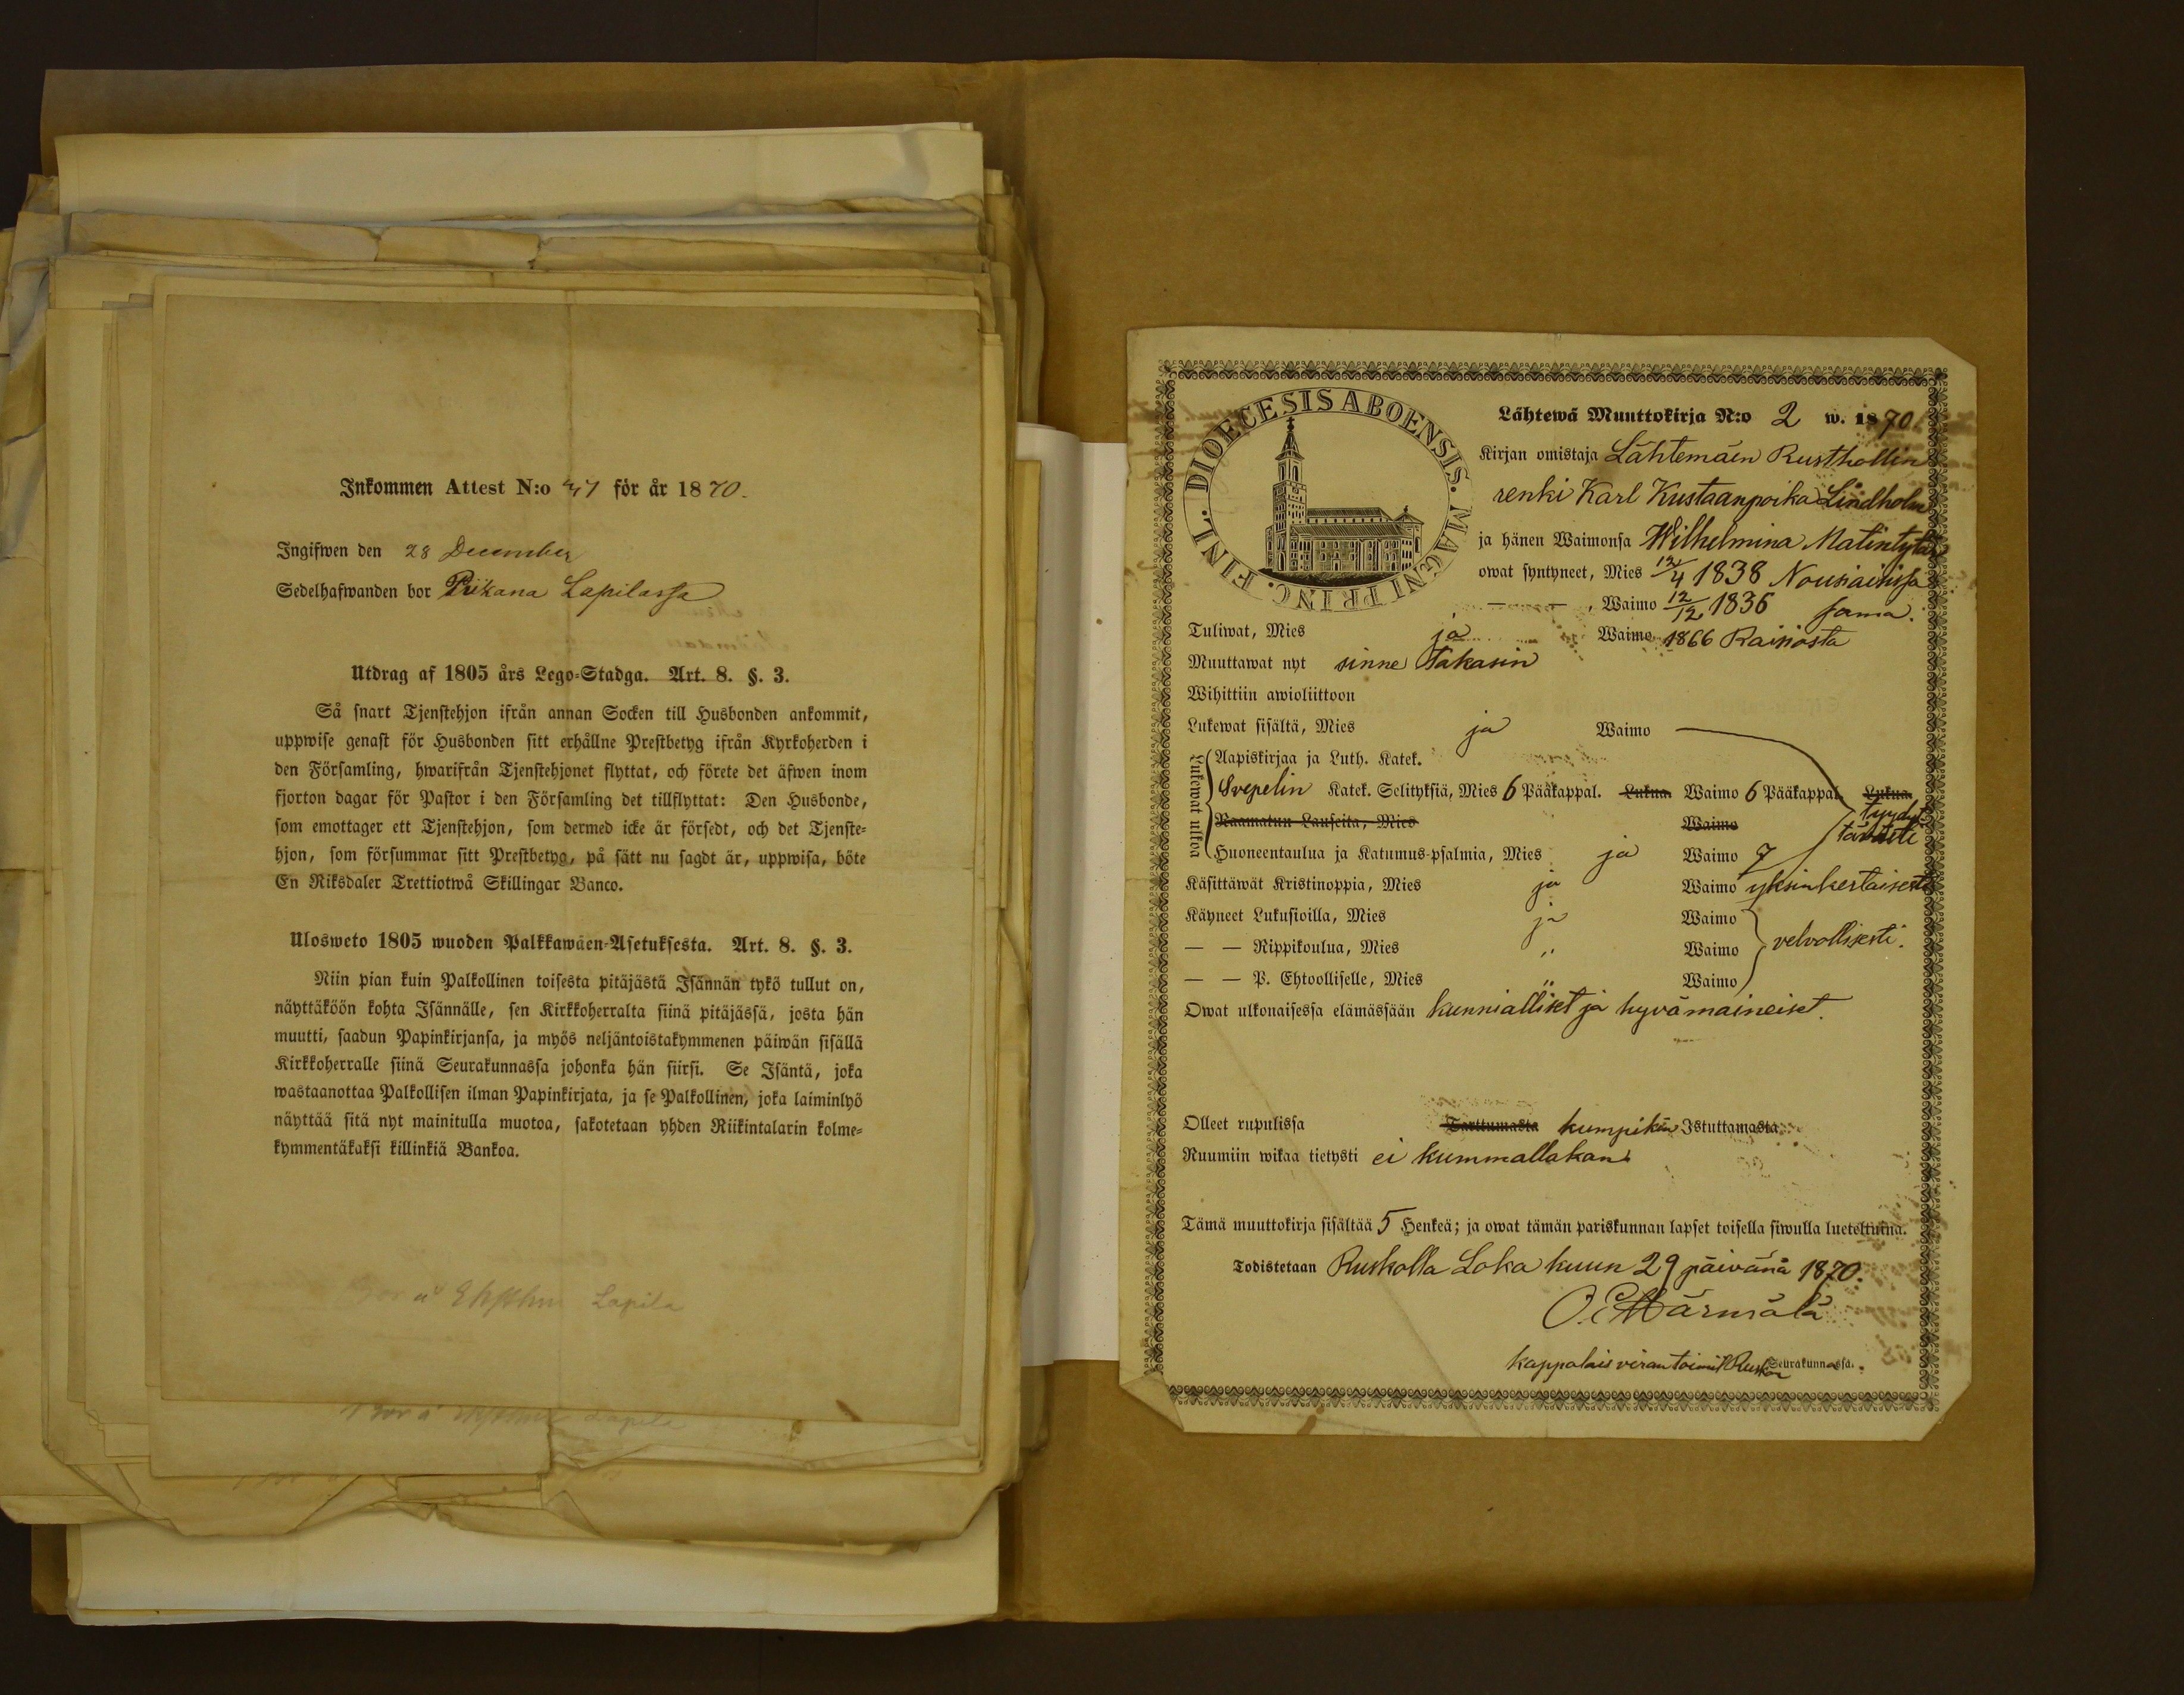 Inkommen Attest N:o 41 för år 1870.
Ingifwen den 28 December
Sedelhafwanden bor Piikana Lapilassa
Utdrag af 1805 års Lego-Stadga. Art. 8. §. 3.
Så snart Tjenstehjon ifrån annan Socken till Husbonden ankommit,
uppwise genast för Husbonden sitt erhållne Prestbetyg ifrån Kyrkoherden i
den Församling, hwarifrån Tjenstehjonet flyttat, och förete det äfwen inom
fjorton dagar för Pastor i den Församling det tillflyttat: Den Husbonde,
som emottager ett Tjenstehjon, som dermed icke är försedt, och det Tjenste-
hjon, som försummar sitt Prestbetyg, på sätt nu sagdt är, uppwisa, böte
En Riksdaler Trettiotwå Skillingar Banco.
Ulosweto 1805 wuoden Palkkawäen-Asetuksesta. Art. 8. §. 3.
Niin pian kuin Palkollinen toisesta pitäjästä Isännän tykö tullut on,
näyttäköön kohta Isännälle, sen Kirkkoherralta siinä pitäjässä, josta hän
muutti, saadun Papinkirjansa, ja myös neljäntoistakymmenen päiwän sisällä
Kirkkoherralle siinä Seurakunnassa johonka hän siirsi. Se Isäntä, joka
wastaanottaa Palkollisen ilman Papinkirjata, ja se Palkollinen, joka laiminlyö
näyttää sitä nyt mainitulla muotoa, sakotetaan yhden Riikintalarin kolme-
kymmentäkaksi killinkiä Bankoa.
Lapila
Lapila
DIOECESIS ABOENSIS. MAGNI PRINC. FINL.
Lähtewä Muuttokirja N:o 2 w. 1870
Kirjan omistaja Lähtemäen Rusthollin
renki Karl Kustaanpoika Lindholm
ja hänen Waimonsa Wilhelmina Matintytär
owat syntyneet, Mies 12/4 1838 Nousiaisissa
— — , Waimo 12/12 1836 sama.
Tuliwat, Mies ja Waimo 1866 Raisiosta
Muuttawat nyt sinne takasin
Wihittiin awioliittoon
Lukewat sisältä, Mies ja Waimo —
Lukewat ulkoa
Aapiskirjaa ja Luth. Katek.
Svepelin Katek. Selityksiä, Mies 6 Pääkappal. Lukua. Waimo 6 Pääkappal. Lukua.
tyydyt
tävästi
Raamatun Lauseita, Mies Waimo
Huoneentaulua ja Katumus-psalmia, Mies ja Waimo 7
Käsittäwät Kristinoppia, Mies ja Waimo yksinkertaisesti
Käyneet Lukusioilla, Mies ja Waimo
— — Rippikoulua, Mies " Waimo velvollisesti.
— — P. Ehtoolliselle, Mies " Waimo
Owat ulkonaisessa elämässään kunnialliset ja hyvämaineiset.
Olleet rupulissa Tarttumasta kumpikin Istuttamasta
Ruumiin wikaa tietysti ei kummallakan
Tämä muuttokirja sisältää 5 Henkeä; ja owat tämän pariskunnan lapset toisella siwulla lueteltuina.
Todistetaan Ruskolla Loka kuun 29 päivänä 1870.
kappalais viran toimit. Ruskon Seurakunnassa.